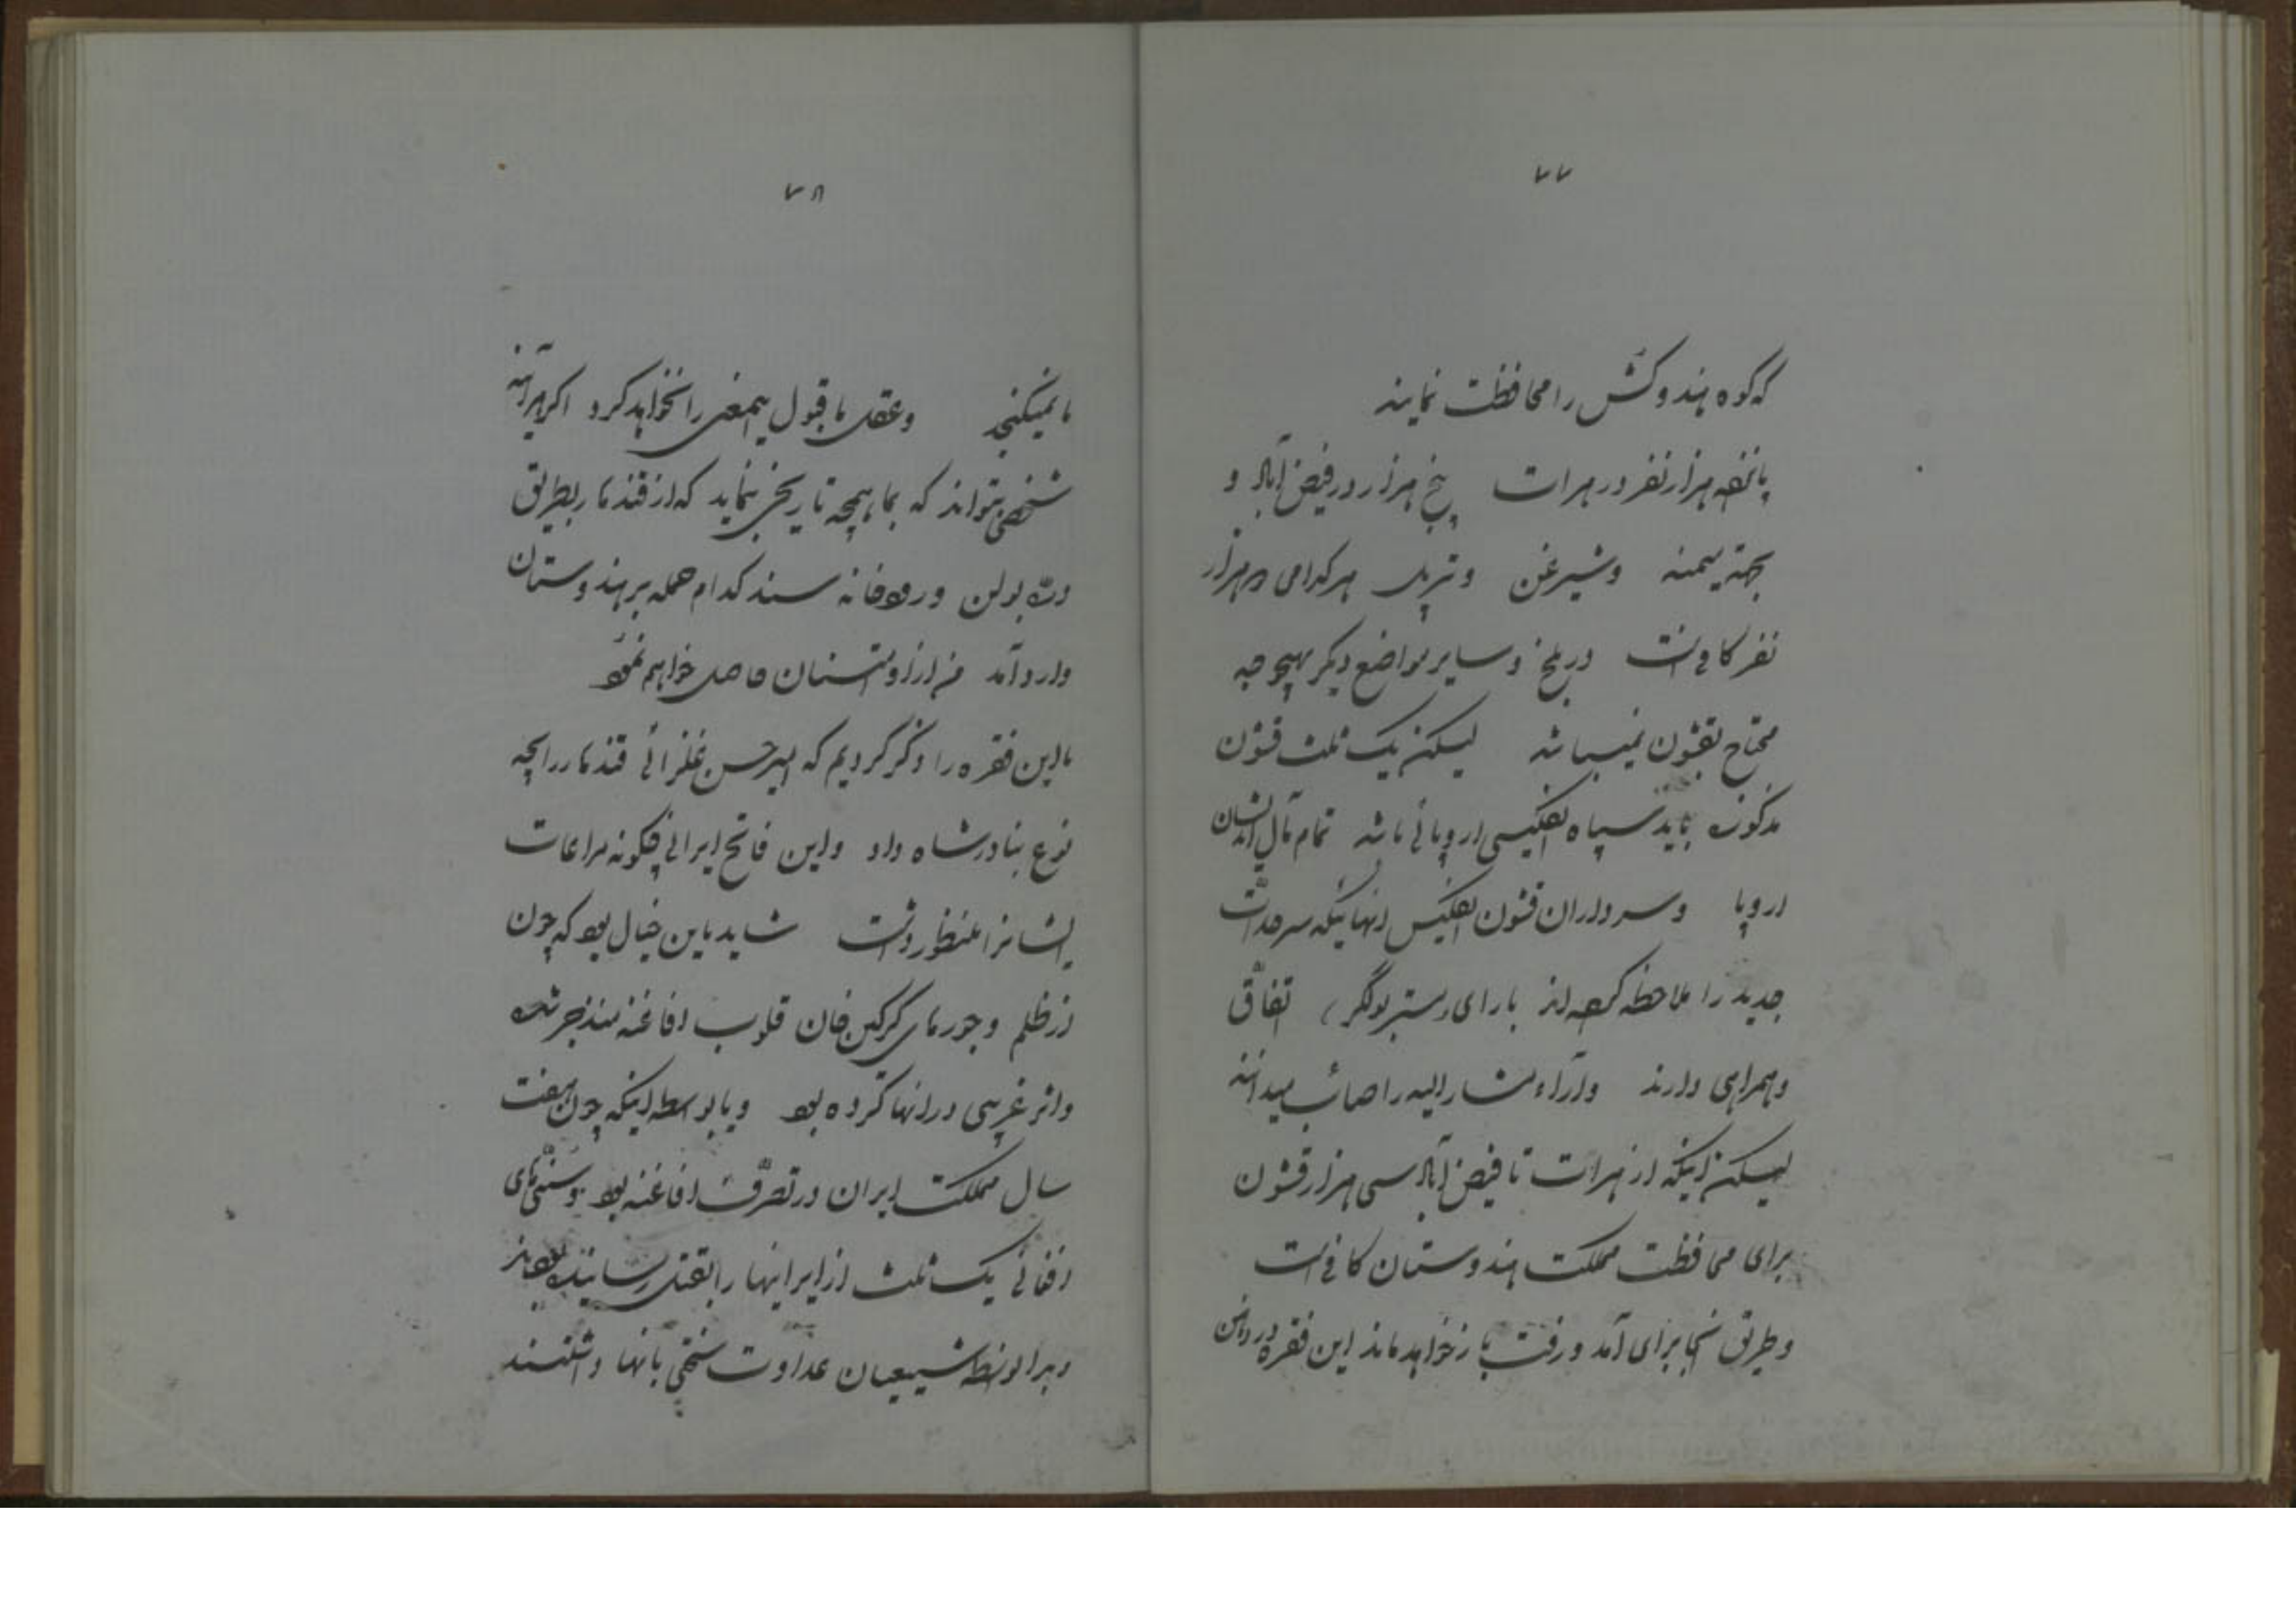 ۷۷
که کوه هندوکش را محافظت نمایند
پانزده هزار نفر در هرات پنج هزار در فیض آباد و
بجهة میمنه و شبرغن و سرپل هر کدامی دو هزار
نفر کافیست در بلخ و سایر مواضع دیگر بهیچوجه
محتاج بقشون نمیباشد لیکن یک ثلث قشون
مذکوره باید سپاه انگلیسی اروپائی باشد تمام مآل اندیشان
اروپا و سرداران قشون انگلیس انهائیکه سرحدات
جدید را ملاحظه کرده‌اند با رای اتفاق
و همراهی دارند و آراء مشار الیه را صائب میدانند
لیکن اینکه از هرات تا فیض آباد سی هزار قشون
برای محافظت مملکت هندوستان کافی است
و طریق برای آمد و رفت باز نخواهد ماند این فقره در ذهن
۷۸
ما نمیگنجد و عقل ما قبول اینمعنی را نخواهد کرد اگر هرآینه
شخصی بتواند که بما تاریخی بنماید که از قندهار بطریق
دره بولن و رودخانه سند کدام حمله بر هندوستان
وارد آمد من از او امتنان حاصل خواهم نمود
ما این فقره را ذکر کردیم که امیر حسن غلزائی قندهار را بچه
نوع بنادرشاه داد و این فاتح ایرانی چگونه مراعات
ایشانرا منظور داشت شاید باین خیال بود که چون
از ظلم و جورهای گرگین خان قلوب افاغنه منزجر شده
و اثر غریبی در انها کرده بود و یا بواسطه اینکه چون هفت
سال مملکت ایران در تصرف افاغنه بود و سنی های
افغانی یک ثلث از ایرانیها را بقتل رسانیده بودند
و بدانواسطه شیعیان عداوت سختی بانها داشتند